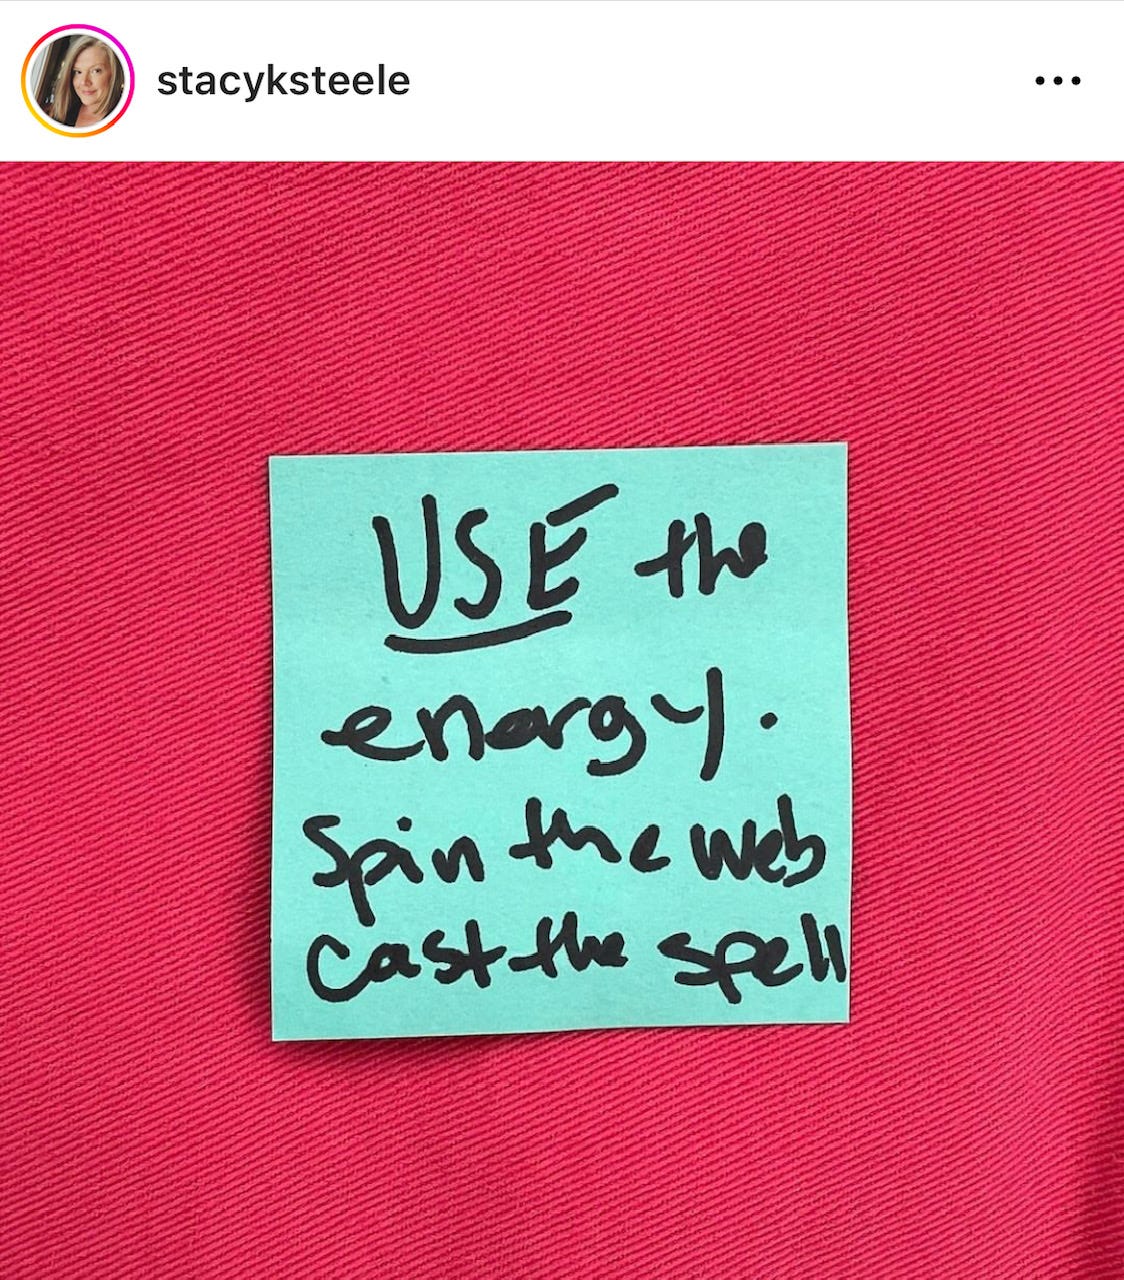 stacyksteele
USE the
energy.
Spin the web
cast the spell